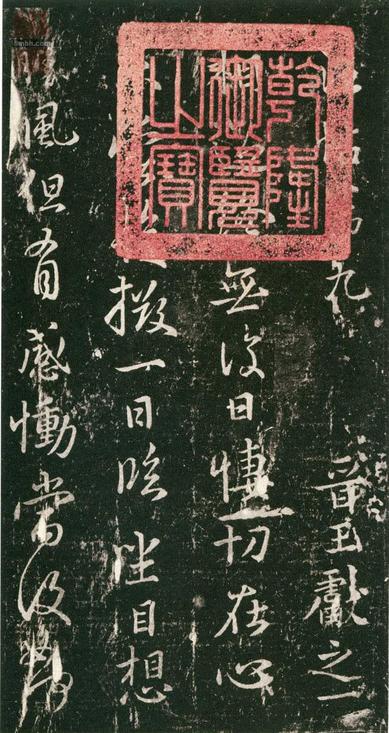 乾隆
御覽
之寶
九 晉王獻之一
無復日悽切在心
撥一日臨坐目想
風但有感慟當復